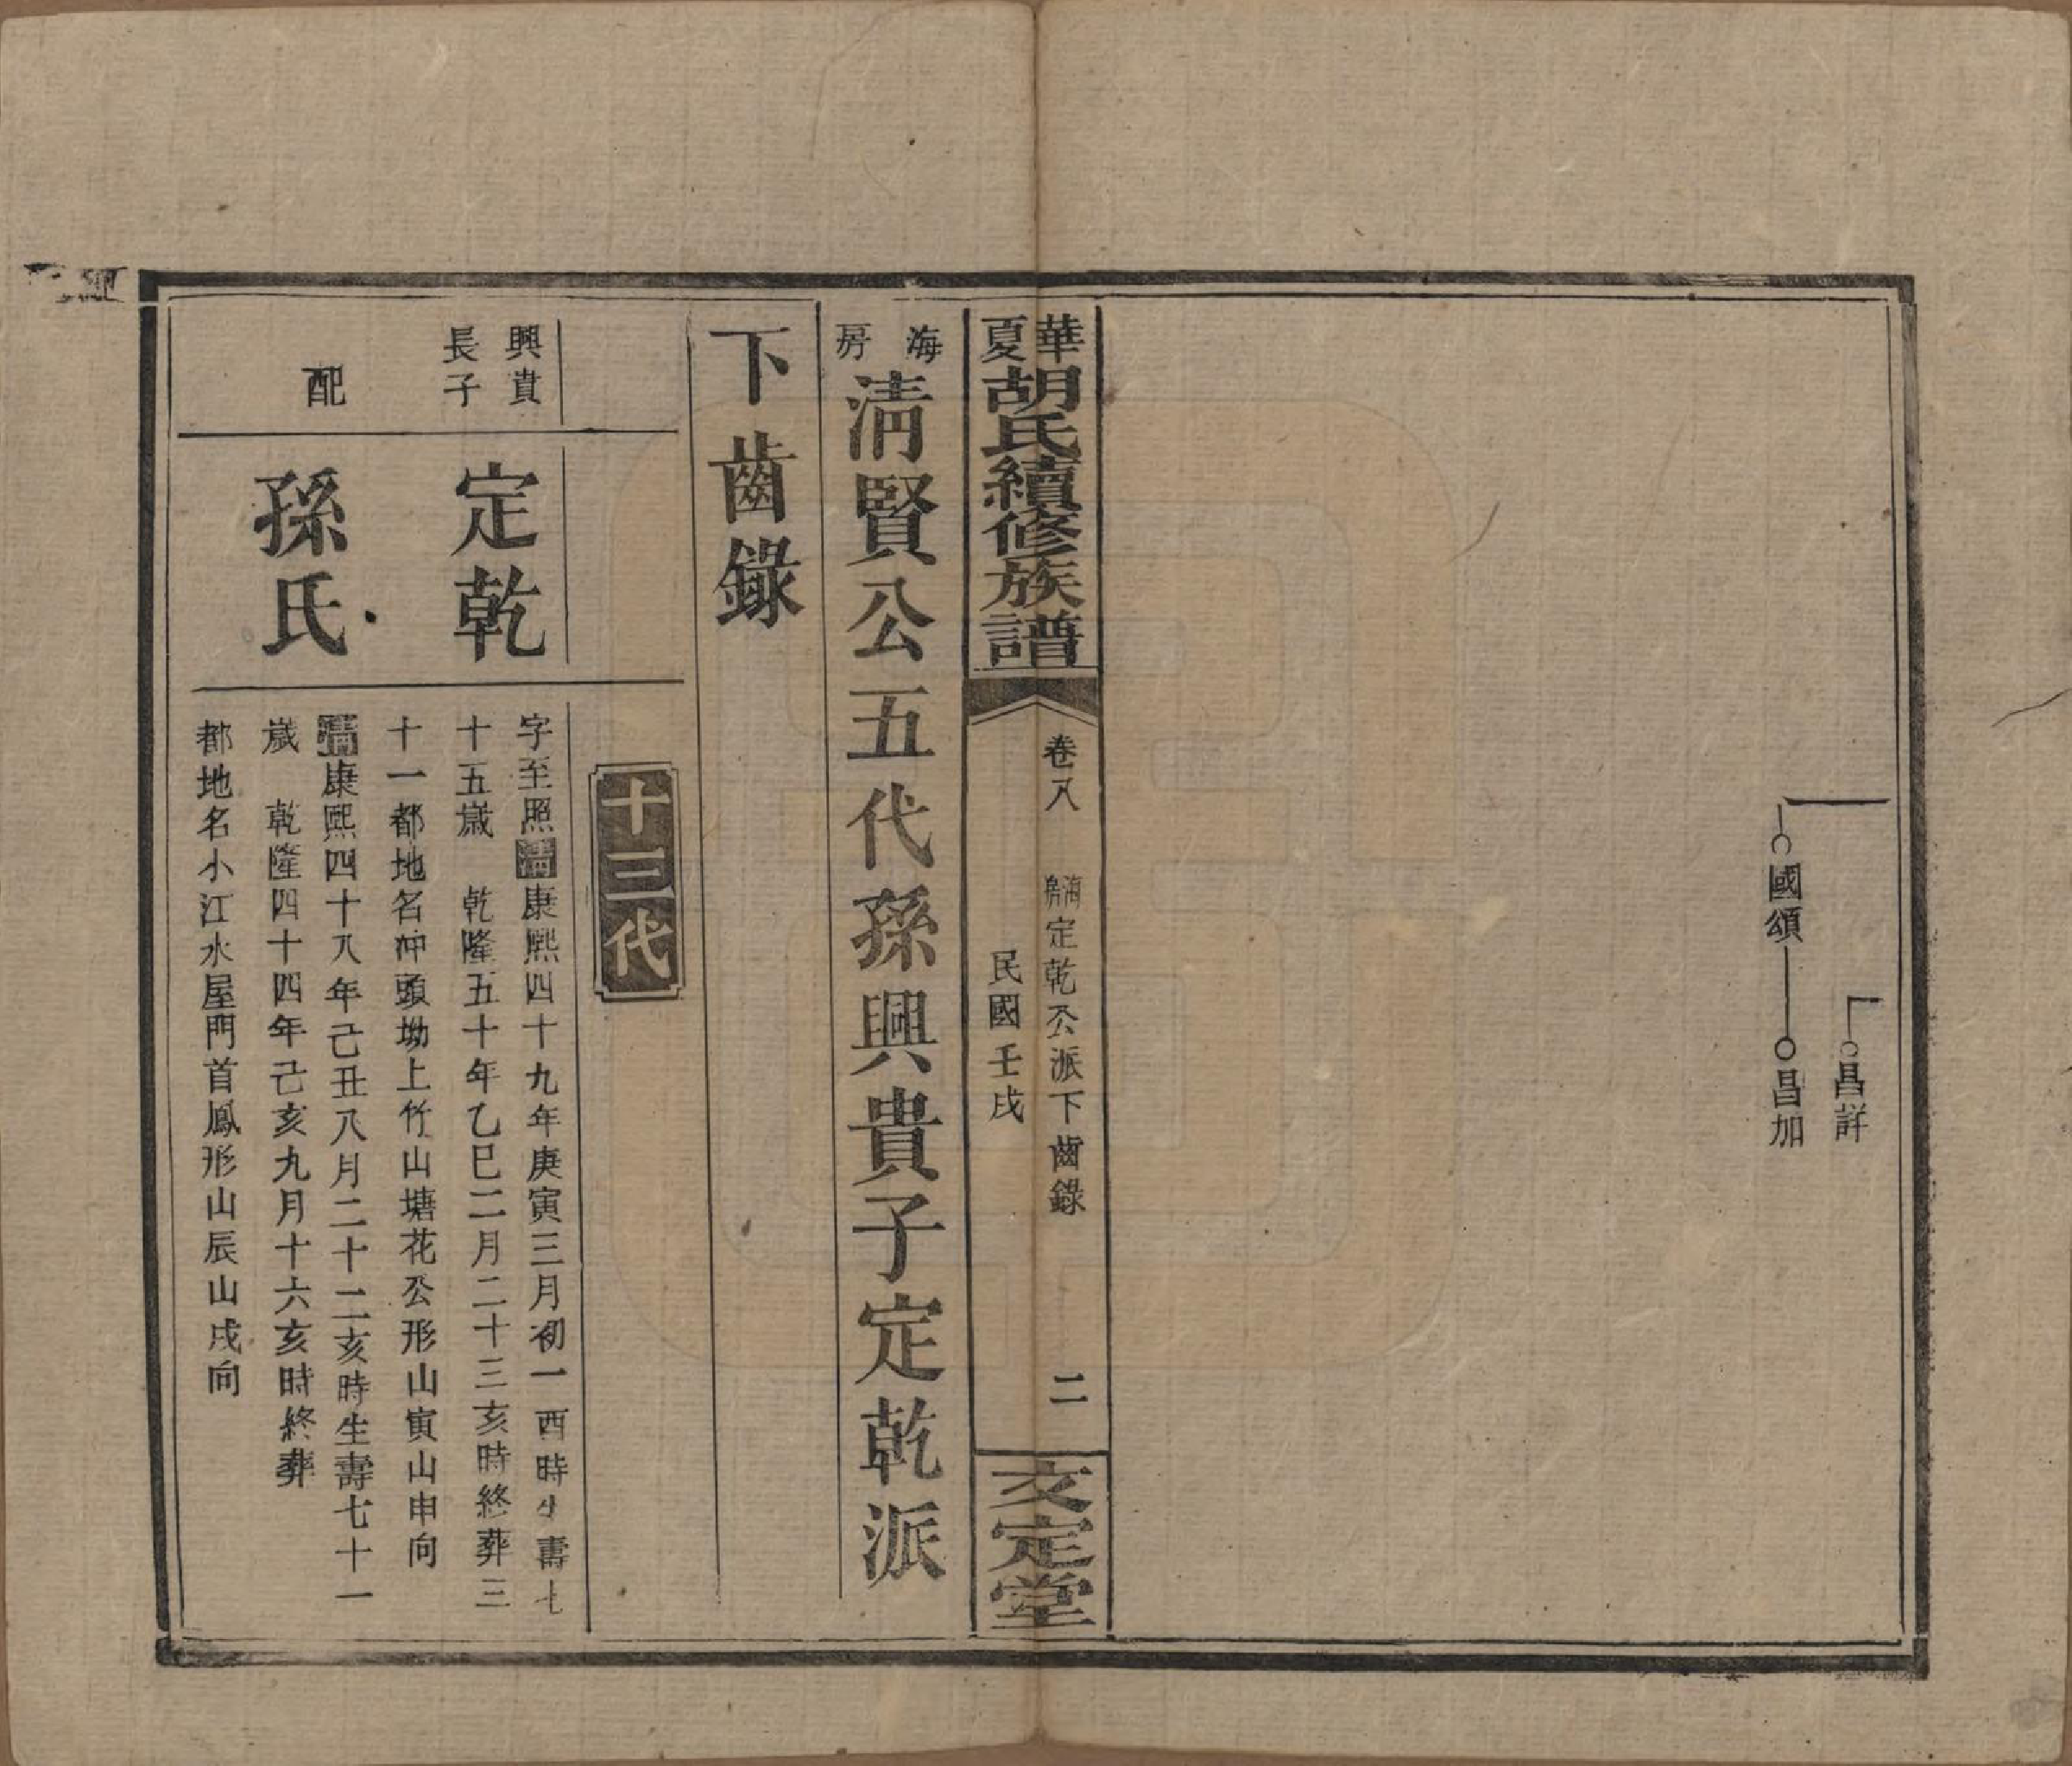 昌詳
國頌 昌加
華夏胡氏續修族譜
卷八 海房定乾公派下齒錄 二
民國壬戌
文定堂
海房清賢公五代孫興貴子定乾派
下齒錄
十三代
興貴長子
定乾
字至照清康熙四十九年庚寅三月初一酉時生壽七
十五歲 乾隆五十年乙巳二月二十三亥時終葬三
十一都地名冲頭坳上竹山塘花公形山寅山申向
配
孫氏
清康熙四十八年己丑八月二十二亥時生壽七十一
歲 乾隆四十四年己亥九月十六亥時終葬
都地名小江水屋門首鳳形山辰山戌向